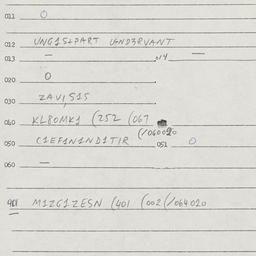 011 0
012 UNG1S2PART UGND3RVANT
013 — 014 —
020 0
030 ZAV,S1S
040 KLBOMK1 (252 (067
(/060020
050 C1EF1N1ND1T1R 051 0
060 —
401 M1ZG1ZESN (401 (002 (/064020